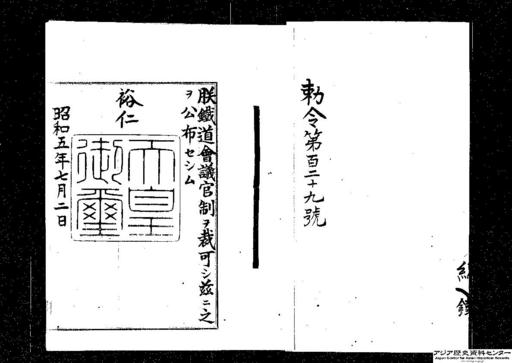 勅令第百二十九號
朕鐵道會議官制ヲ裁可シ茲ニ之
ヲ公布セシム
裕仁
天皇
御璽
昭和五年七月二日
アジア歴史資料センター
Japan Center for Asian Historical Records